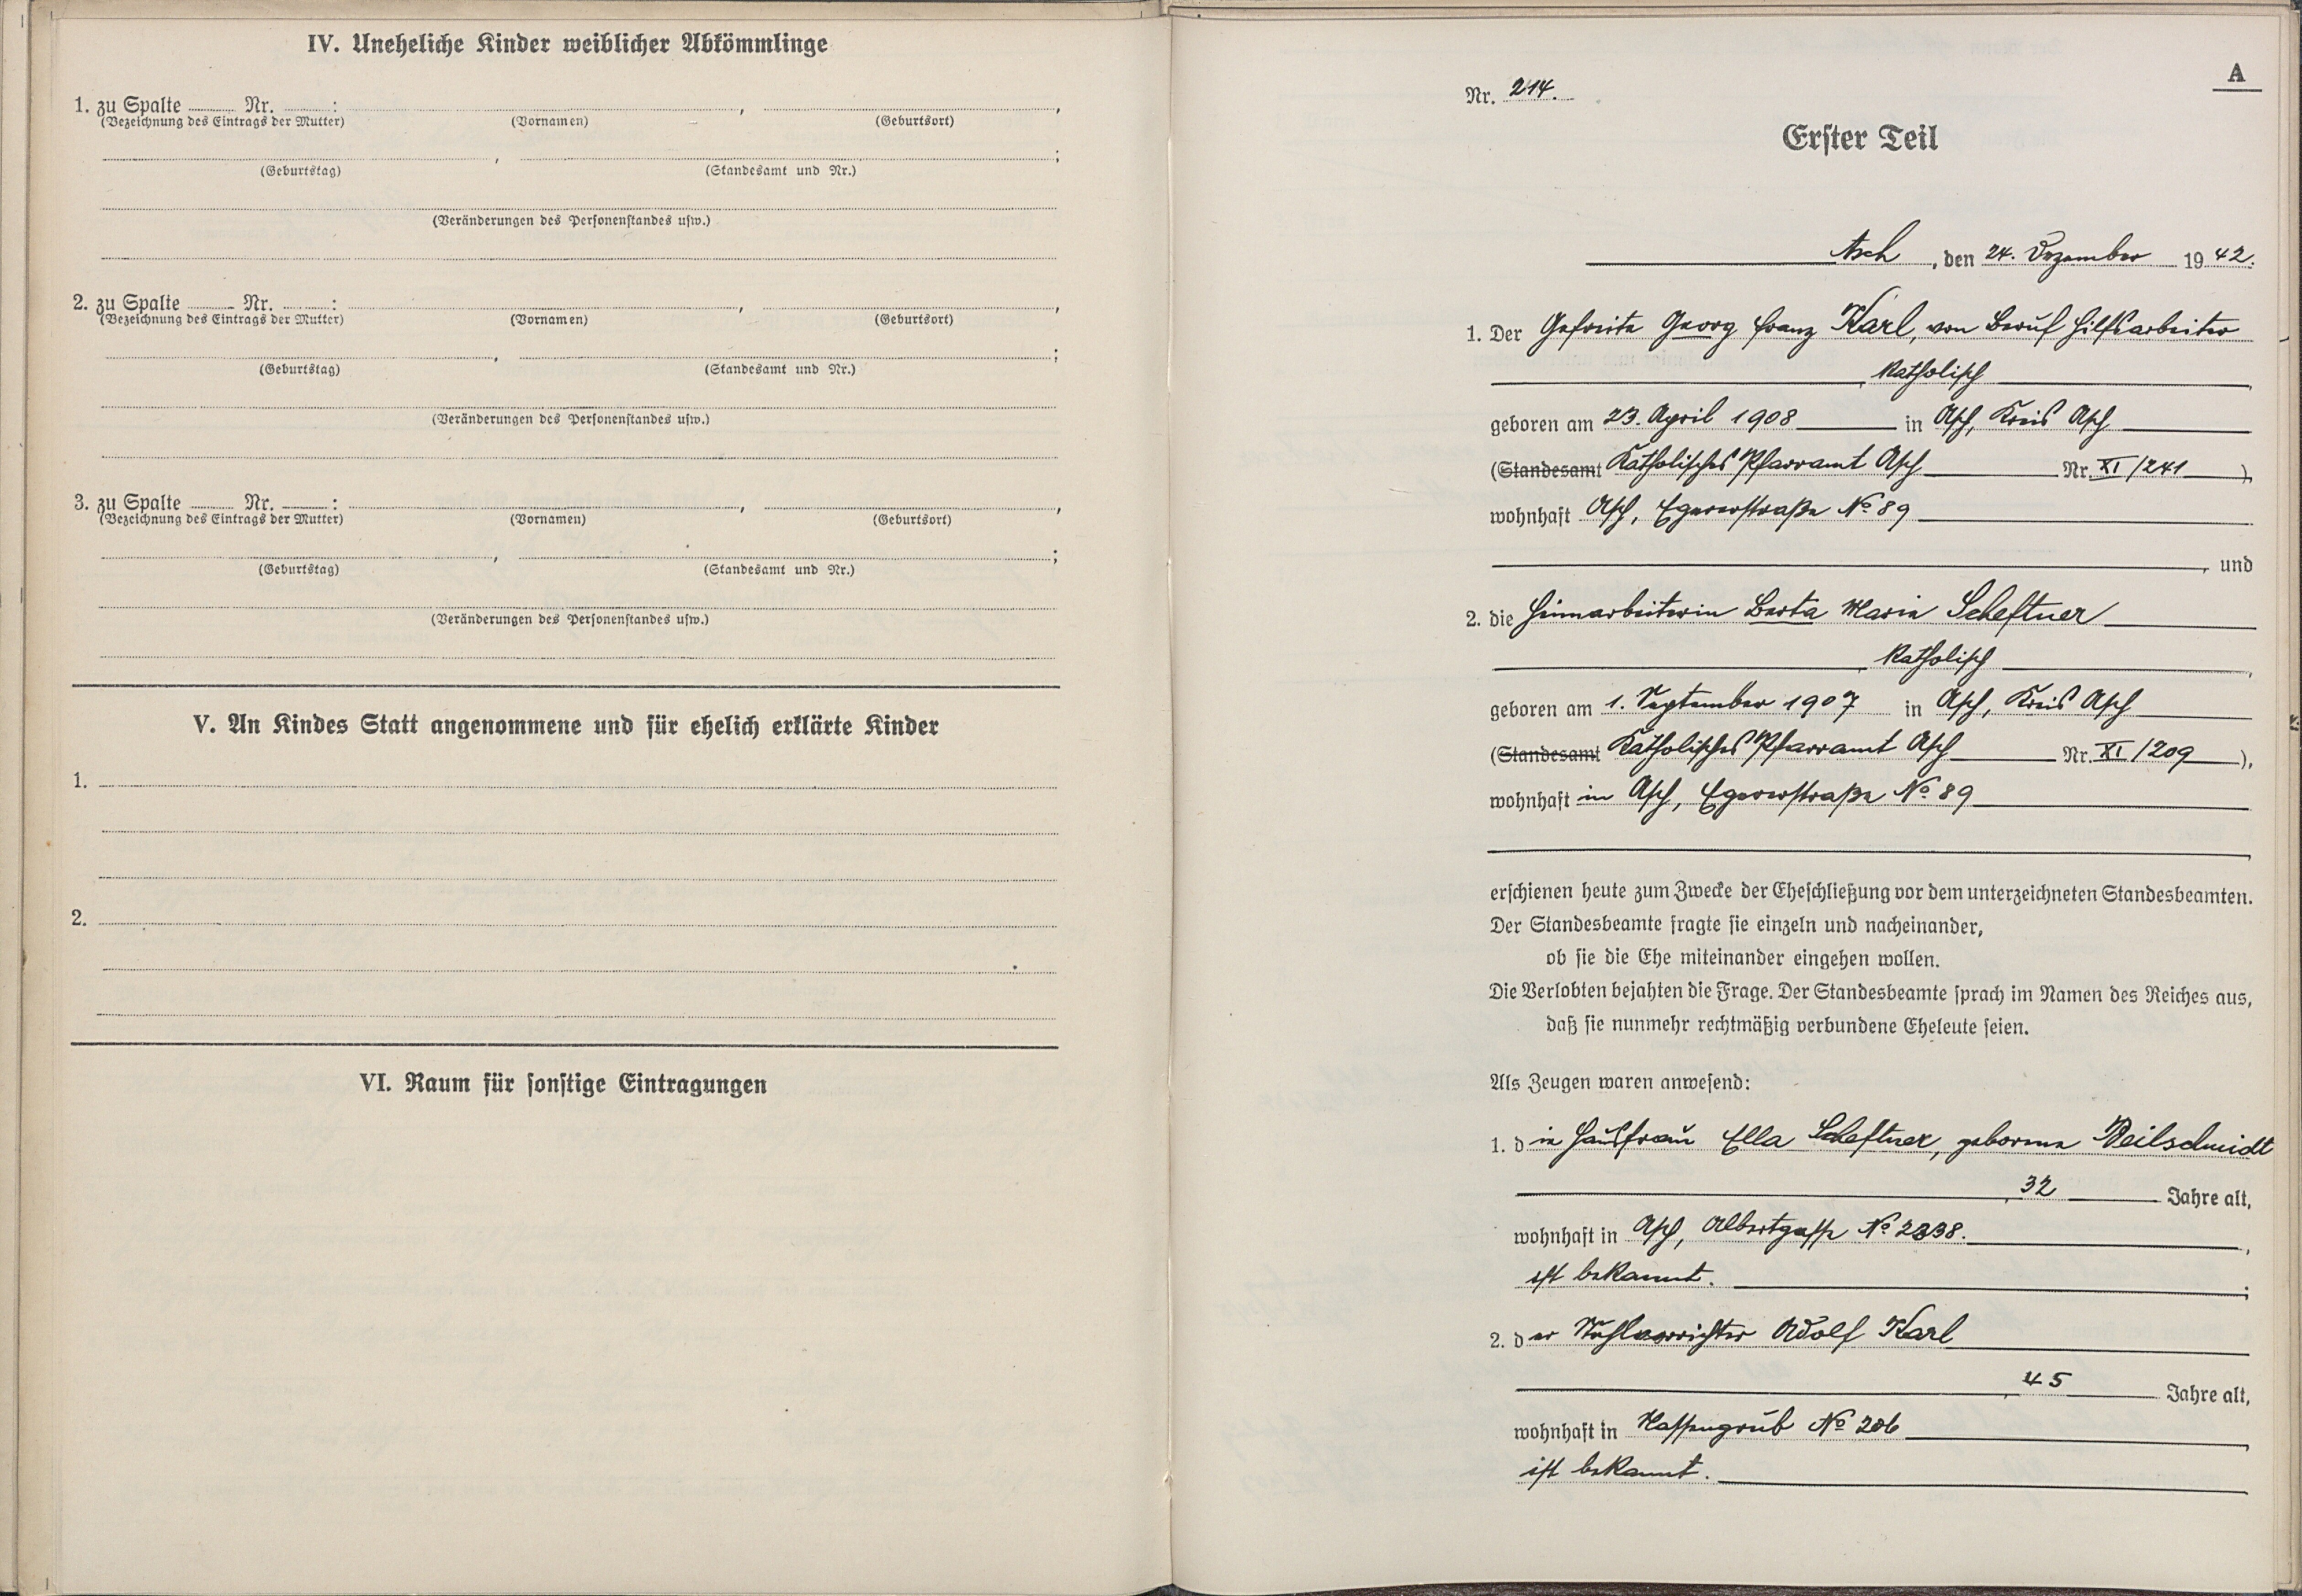 IV. Uneheliche Kinder weiblicher Abkömmlinge
1. zu Spalte ........ Nr. ........: ........, ........,
(Bezeichnung des Eintrags der Mutter) (Vornamen) (Geburtsort)
........, ........;
(Geburtstag) (Standesamt und Nr.)
(Veränderungen des Personenstandes usw.)
2. zu Spalte ........ Nr. ........: ........, ........,
(Bezeichnung des Eintrags der Mutter) (Vornamen) (Geburtsort)
........, ........;
(Geburtstag) (Standesamt und Nr.)
(Veränderungen des Personenstandes usw.)
3. zu Spalte ........ Nr. ........: ........, ........,
(Bezeichnung des Eintrags der Mutter) (Vornamen) (Geburtsort)
........, ........;
(Geburtstag) (Standesamt und Nr.)
(Veränderungen des Personenstandes usw.)
V. An Kindes Statt angenommene und für ehelich erklärte Kinder
1.
2.
VI. Raum für sonstige Eintragungen
A
Nr. 214.
Erster Teil
Asch, den 24. Dezember 1942.
1. Der Gefreite Georg Franz Karl, von Beruf Hilfsarbeiter
, katholisch,
geboren am 23. April 1908 in Asch, Kreis Asch
(Standesamt Katholisches Pfarramt Asch Nr. XI/241),
wohnhaft Asch, Egererstraße No 89
, und
2. die Heimarbeiterin Berta Maria Scheftner
, katholisch,
geboren am 1. September 1907 in Asch, Kreis Asch
(Standesamt Katholisches Pfarramt Asch Nr. XI/209),
wohnhaft in Asch, Egererstraße No 89
,
erschienen heute zum Zwecke der Eheschließung vor dem unterzeichneten Standesbeamten.
Der Standesbeamte fragte sie einzeln und nacheinander,
ob sie die Ehe miteinander eingehen wollen.
Die Verlobten bejahten die Frage. Der Standesbeamte sprach im Namen des Reiches aus,
daß sie nunmehr rechtmäßig verbundene Eheleute seien.
Als Zeugen waren anwesend:
1. die Hausfrau Ella Scheftner, geborene Beilschmidt
, 32 Jahre alt,
wohnhaft in Asch, Albertgasse No 2338.,
ist bekannt. ;
2. der Stuhlvorrichter Adolf Karl
, 45 Jahre alt,
wohnhaft in Nassengrub No 206,
ist bekannt.